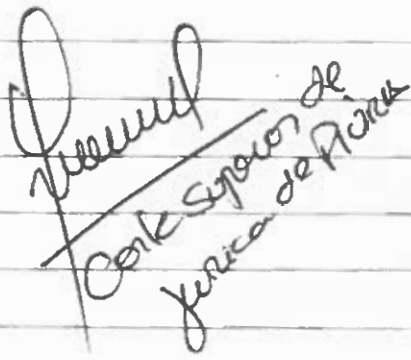 Corte Superior de
Justicia de Piura